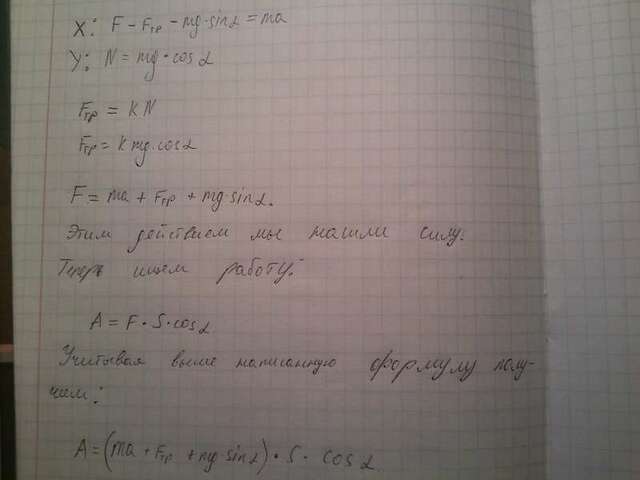 X: F - Fтр - mg·sinα = ma
Y: N = mg·cosα
Fтр = kN
Fтр = kmg cosα
F = ma + Fтр + mg·sinα.
Этим действием мы нашли силу.
Теперь ищем работу:
A = F·S·cosα
Учитывая выше написанную формулу полу-
чаем:
A = (ma + Fтр + mg sinα)·S·cosα